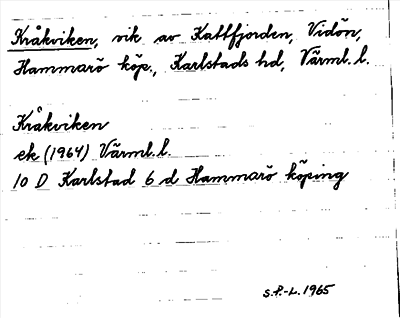 Kråkviken, vik av Kattfjorden, Vidön,
Hammarö köp., Karlstads hd, Värml. l.
Kråkviken
ek (1964) Värml. l.
10 D Karlstad 6 d Hammarö köping
S.P.-L. 1965